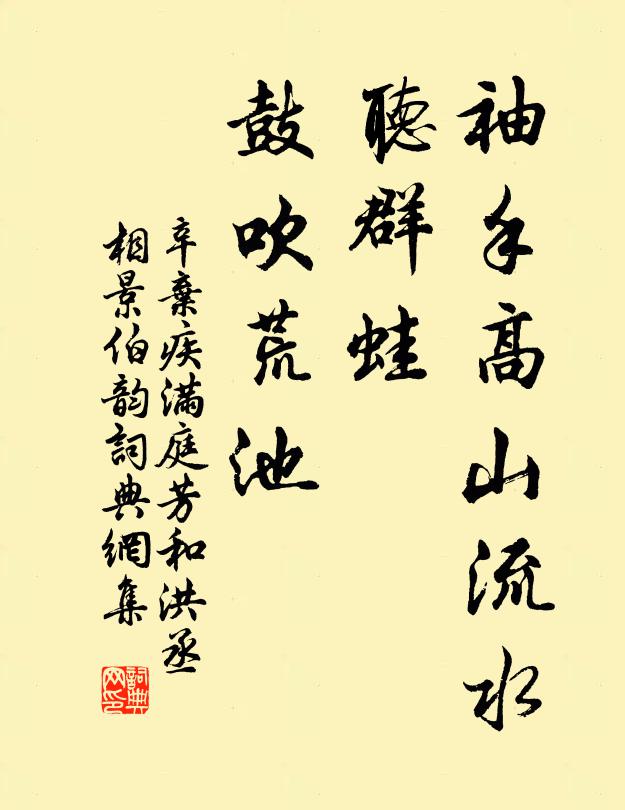 袖手高山流水
聽群蛙
鼓吹荒池
辛棄疾滿庭芳和洪丞
相景伯韵詞典網集
詞典
网印